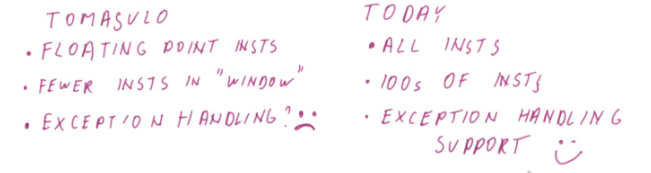 TOMASULO
• FLOATING POINT INSTS
• FEWER INSTS IN "WINDOW"
• EXCEPTION HANDLING?
TODAY
• ALL INSTS
• 100s OF INSTS
• EXCEPTION HANDLING
SUPPORT